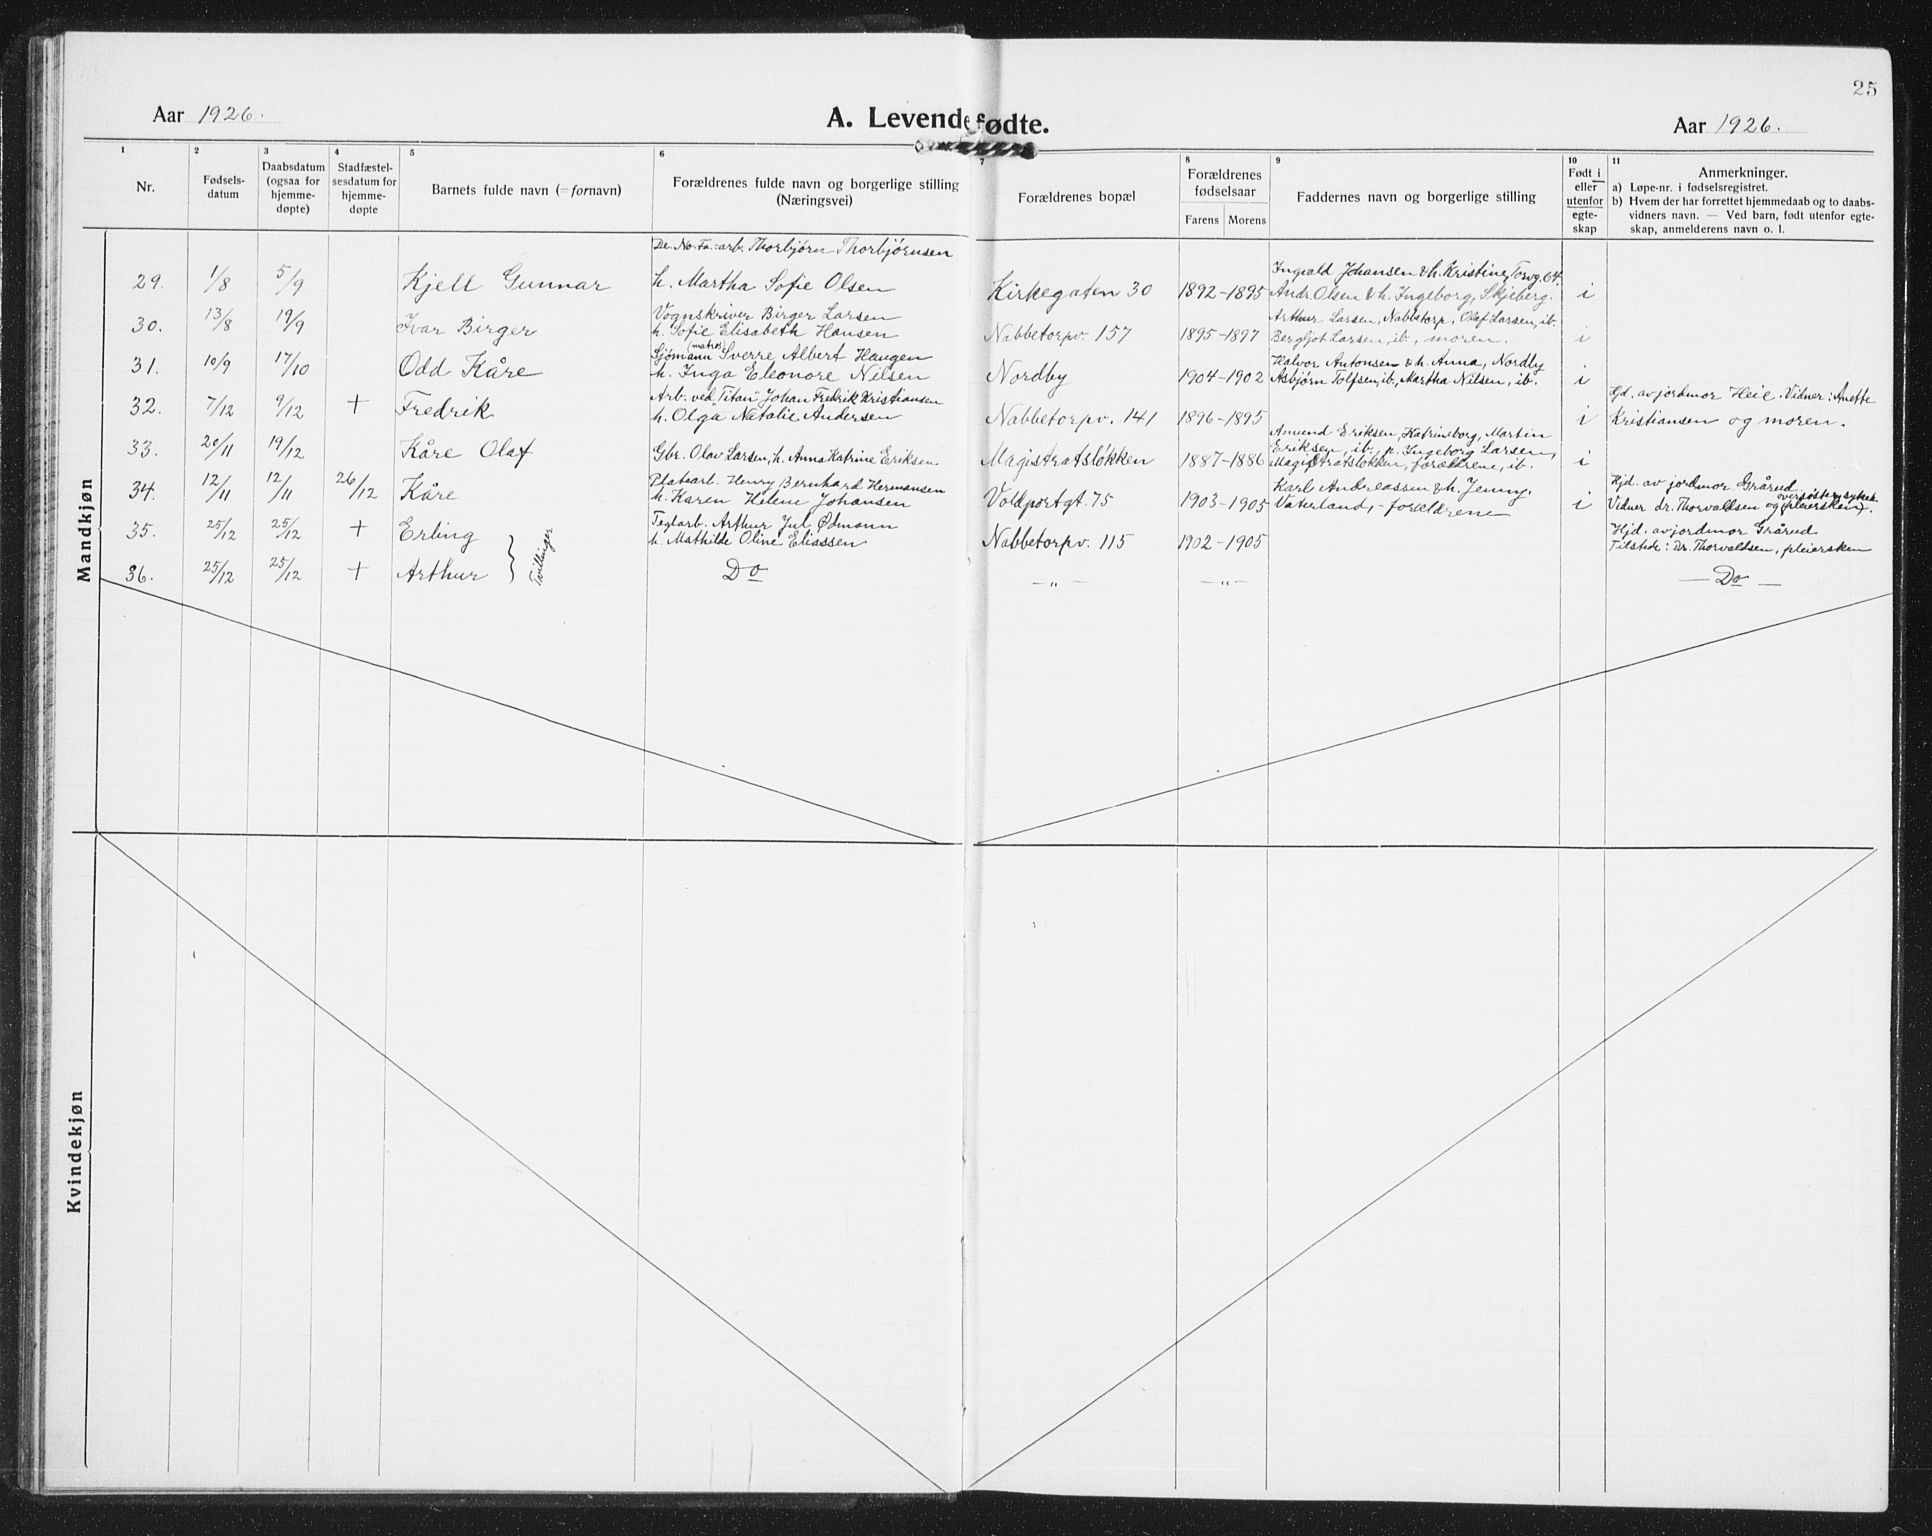 25
Aar 1926.
A. Levendefødte.
Aar 1926.
1
Nr.
2
Fødsels-
datum
3
Daabsdatum
(ogsaa for
hjemme-
døpte)
4
Stadfæstel-
sesdatum for
hjemme-
døpte
5
Barnets fulde navn (= fornavn)
6
Forældrenes fulde navn og borgerlige stilling
(Næringsvei)
7
Forældrenes bopæl
8
Forældrenes
fødselsaar
Farens Morens
9
Faddernes navn og borgerlige stilling
10
Født i
eller
utenfor
egte-
skap
11
Anmerkninger.
a) Løpe-nr. i fødselsregistret.
b) Hvem der har forrettet hjemmedaab og to daabs-
vidners navn. — Ved barn, født utenfor egte-
skap, anmelderens navn o. l.
Mandkjøn
De No Fa.-arb. Thorbjørn Thorbjørnsen
Ingvald Johansen & h. Kristine, Torvg. 64.
29. 1/8 5/9 Kjell Gunnar h. Martha Sofie Olsen Kirkegaten 30 1892-1895 Andr. Olsen & h. Ingeborg, Skjeberg. i
Vognskriver Birger Larsen Arthur Larsen, Nabbetorp, Olaf Larsen, ib.
30. 13/8 19/9 Ivar Birger h. Sofie Elisabeth Hansen Nabbetorpv. 157 1895-1897 Bergljot Larsen, ib., moren. i
Sjömann (matros) Sverre Albert Haugen Halvor Antonsen & h. Anna, Nordby
31. 10/9 17/10 Odd Kåre h. Inga Eleonore Nilsen Nordby 1904-1902 Asbjørn Tolfsen, ib., Martha Nilsen, ib. i
Arb. ved "Titan" Johan Fredrik Kristiansen Hjd. av jordmor Heie. Vidner: Anette
32. 7/12 9/12 + Fredrik h. Olga Natalie Andersen Nabbetorpv. 141 1896-1895 i Kristiansen og moren.
Amund Eriksen, Katrineborg, Martin
33. 20/11 19/12 Kåre Olaf Gbr. Olav Larsen, h. Anna Katrine Eriksen Magistratsløkken 1887-1886 Eriksen, ib., p. Ingeborg Larsen,
Magistratsløkken, forældrene, ib. i
Platearb. Henry Bernhard Hermansen Karl Andreassen & h. Jenny, Hjd. av jordmor Grårud.
34. 12/11 12/11 26/12 Kåre h. Karen Helene Johansen Voldportgt. 75 1903-1905 Vaterland, - forældrene i Vidner dr. Thorvaldsen og pleiersken.
Teglarb. Arthur Jul Ødmann Hjd. av jordmor Grårud
35. 25/12 25/12 + Erling h. Mathilde Oline Eliassen Nabbetorpv. 115 1902-1905 Tilstede: Dr. Thorvaldsen, pleiersken
Tvillinger
36. 25/12 25/12 + Arthur Do —„— —„— — Do —
Kvindekjøn